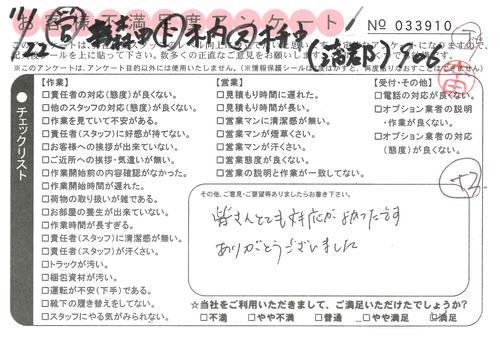 お客様不満足度アンケート
No 033910
※このアンケートは、アンケート目的以外には使用いたしません。
チェックリスト
【作業】
□責任者の対応（態度）が良くない。
□他のスタッフの対応（態度）が良くない。
□作業を見ていて不安がある。
□責任者（スタッフ）に好感が持てない。
□お客様への挨拶が出来ていない。
□ご近所への挨拶・気遣いが無い。
□作業開始前の内容確認がなかった。
□作業開始時間が遅れた。
□荷物の取り扱いが雑である。
□お部屋の養生が出来ていない。
□作業時間が長すぎる。
□責任者（スタッフ）に清潔感が無い。
□責任者（スタッフ）が汗くさい。
□トラックが汚い。
□梱包資材が汚い。
□運転が不安（下手）である。
□靴下の履き替えをしてない。
□スタッフにやる気がみられない。
【営業】
□見積もり時間に遅れた。
□見積もり時間が長い。
□営業マンに清潔感が無い。
□営業マンが煙草くさい。
□営業マンが汗くさい。
□営業態度が良くない。
□営業の説明と作業が一致してない。
【受付・その他】
□電話の対応が良くない。
□オプション業者の説明・作業が良くない。
□オプション業者の対応（態度）が良くない。
53
その他、ご意見・ご要望等ありましたらお書き下さい。
皆さんとても対応がよかったです
ありがとうございました
☆当社をご利用いただきまして、ご満足いただけたでしょうか？
□不満 □やや不満 □普通 □やや満足 □満足